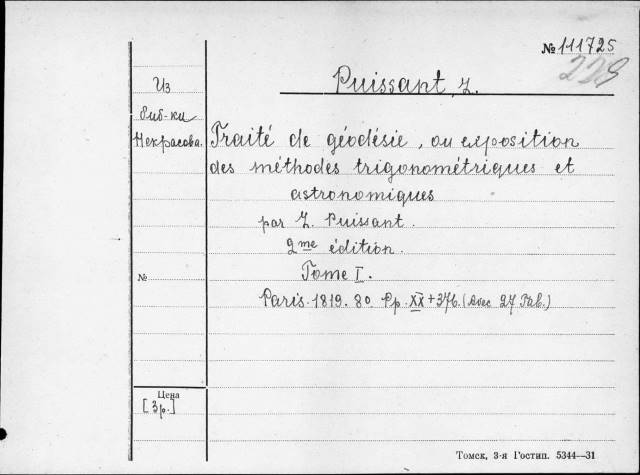 № 111725
229
Puissant, L.
Из
биб-ки
Некрасова.
Traité de géodésie, ou exposition
des méthodes trigonométriques et
astronomiques
par L. Puissant.
2me édition.
Tome I.
№
Paris. 1819. 8º. Pp. XX+376. (Avec 27 Tab.)
Цена
[3р.]
Томск, 3-я Гостип. 5344—31